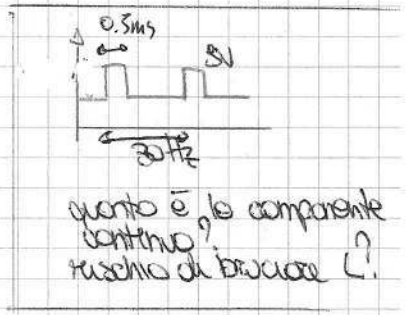 0.5ms
5V
30 Hz
quanto è la componente
continua?
rischio di bruciare L?